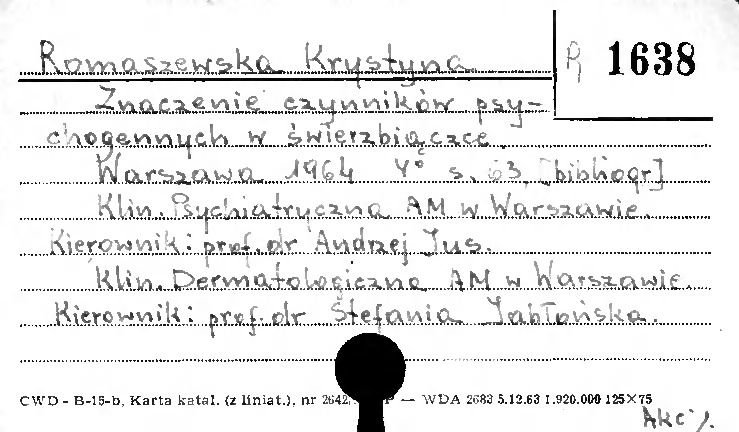 Romaszewska Krystyna R 1638
Znaczenie czynników psy-
chogennych w świerzbiączce.
Warszawa 1964 4° s. 63, [bibliogr]
Klin. Psychiatryczna AM w Warszawie.
Kierownik: prof. dr Andrzej Jus.
Klin. Dermatologiczna AM w Warszawie.
Kierownik: prof. dr Stefania Jabłońska.
CWD - B-15-b, Karta katal. (z liniat.), nr 2642, P — WDA 2683 5.12.63 1.920.000 125×75